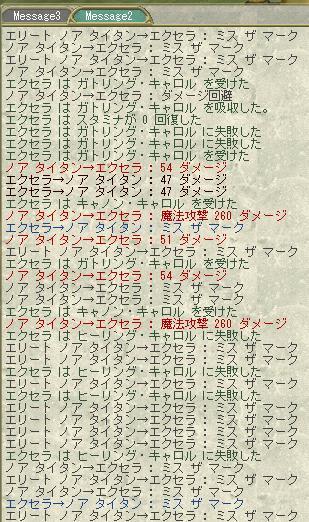 Message3 Message2
エリート ノア タイタン→エクセラ : ミス ザ マーク
ノア タイタン→エクセラ : ミス ザ マーク
エリート ノア タイタン→エクセラ : ミス ザ マーク
ノア タイタン→エクセラ : ミス ザ マーク
エクセラ は ガトリング・キャロル を受けた
ノア タイタン→エクセラ : ダメージ回避
エクセラ は ガトリング・キャロル を吸収した。
エクセラ は スタミナが 0 回復した
エクセラ は ガトリング・キャロル に失敗した
エクセラ は ガトリング・キャロル に失敗した
エクセラ は ガトリング・キャロル を受けた
ノア タイタン→エクセラ : 54 ダメージ
エクセラ→ノア タイタン : 47 ダメージ
エクセラ→ノア タイタン : 47 ダメージ
エクセラ は キャノン・キャロル を受けた
ノア タイタン→エクセラ : 魔法攻撃 260 ダメージ
エクセラ→ノア タイタン : ミス ザ マーク
ノア タイタン→エクセラ : 51 ダメージ
エリート ノア タイタン→エクセラ : ミス ザ マーク
エクセラ は ガトリング・キャロル を受けた
ノア タイタン→エクセラ : 54 ダメージ
ノア タイタン→エクセラ : ミス ザ マーク
ノア タイタン→エクセラ : ミス ザ マーク
エクセラ は キャノン・キャロル を受けた
ノア タイタン→エクセラ : 魔法攻撃 260 ダメージ
エクセラ は ヒーリング・キャロル に失敗した
エリート ノア タイタン→エクセラ : ミス ザ マーク
エクセラ は ヒーリング・キャロル に失敗した
エリート ノア タイタン→エクセラ : ミス ザ マーク
エリート ノア タイタン→エクセラ : ミス ザ マーク
エリート ノア タイタン→エクセラ : ミス ザ マーク
エリート ノア タイタン→エクセラ : ミス ザ マーク
エリート ノア タイタン→エクセラ : ミス ザ マーク
エリート ノア タイタン→エクセラ : ミス ザ マーク
エクセラ は ヒーリング・キャロル に失敗した
ノア タイタン→エクセラ : ミス ザ マーク
ノア タイタン→エクセラ : ミス ザ マーク
ノア タイタン→エクセラ : ミス ザ マーク
エクセラ→ノア タイタン : ミス ザ マーク
エリート ノア タイタン→エクセラ : ミス ザ マーク